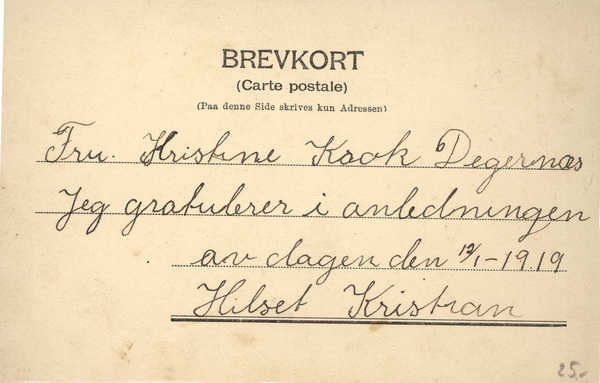 BREVKORT
(Carte postale)
(Paa denne Side skrives kun Adressen)
Fru. Kristine Kook Degernæs
Jeg gratulerer i anledningen
av dagen den 12/1-1919
Hilset Kristian
25,-